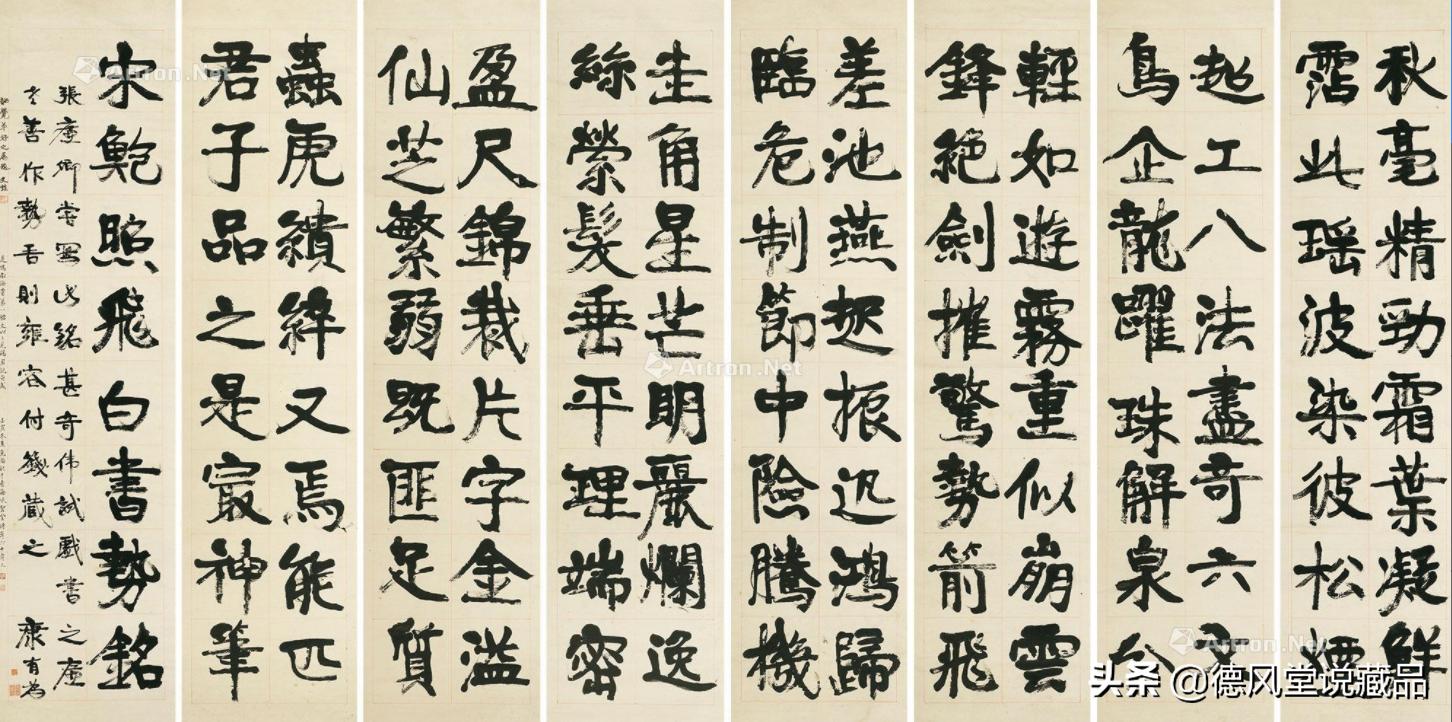 秋毫精勁霜葉凝鮮
霑此瑤波染彼松煙
超工八法盡奇六文
鳥企龍躍珠解泉分
輕如遊霧重似崩雲
鋒絕劍摧驚勢箭飛
差池燕起振迅鴻歸
臨危制節中險騰機
圭角星芒明麗爛逸
絲縈髮垂平理端密
盈尺錦裁片字金溢
仙芝繁弱既匪足質
蟲虎績綷又焉能匹
君子品之是㝡神筆
宋鮑照飛白書勢銘
張廉卿嘗寫此銘甚奇偉試戲書之廉
老善作勢吾則雍容付籤藏之 康有為
Artron.Net
Artron.Net
Artron.Net
头条 @德风堂说藏品